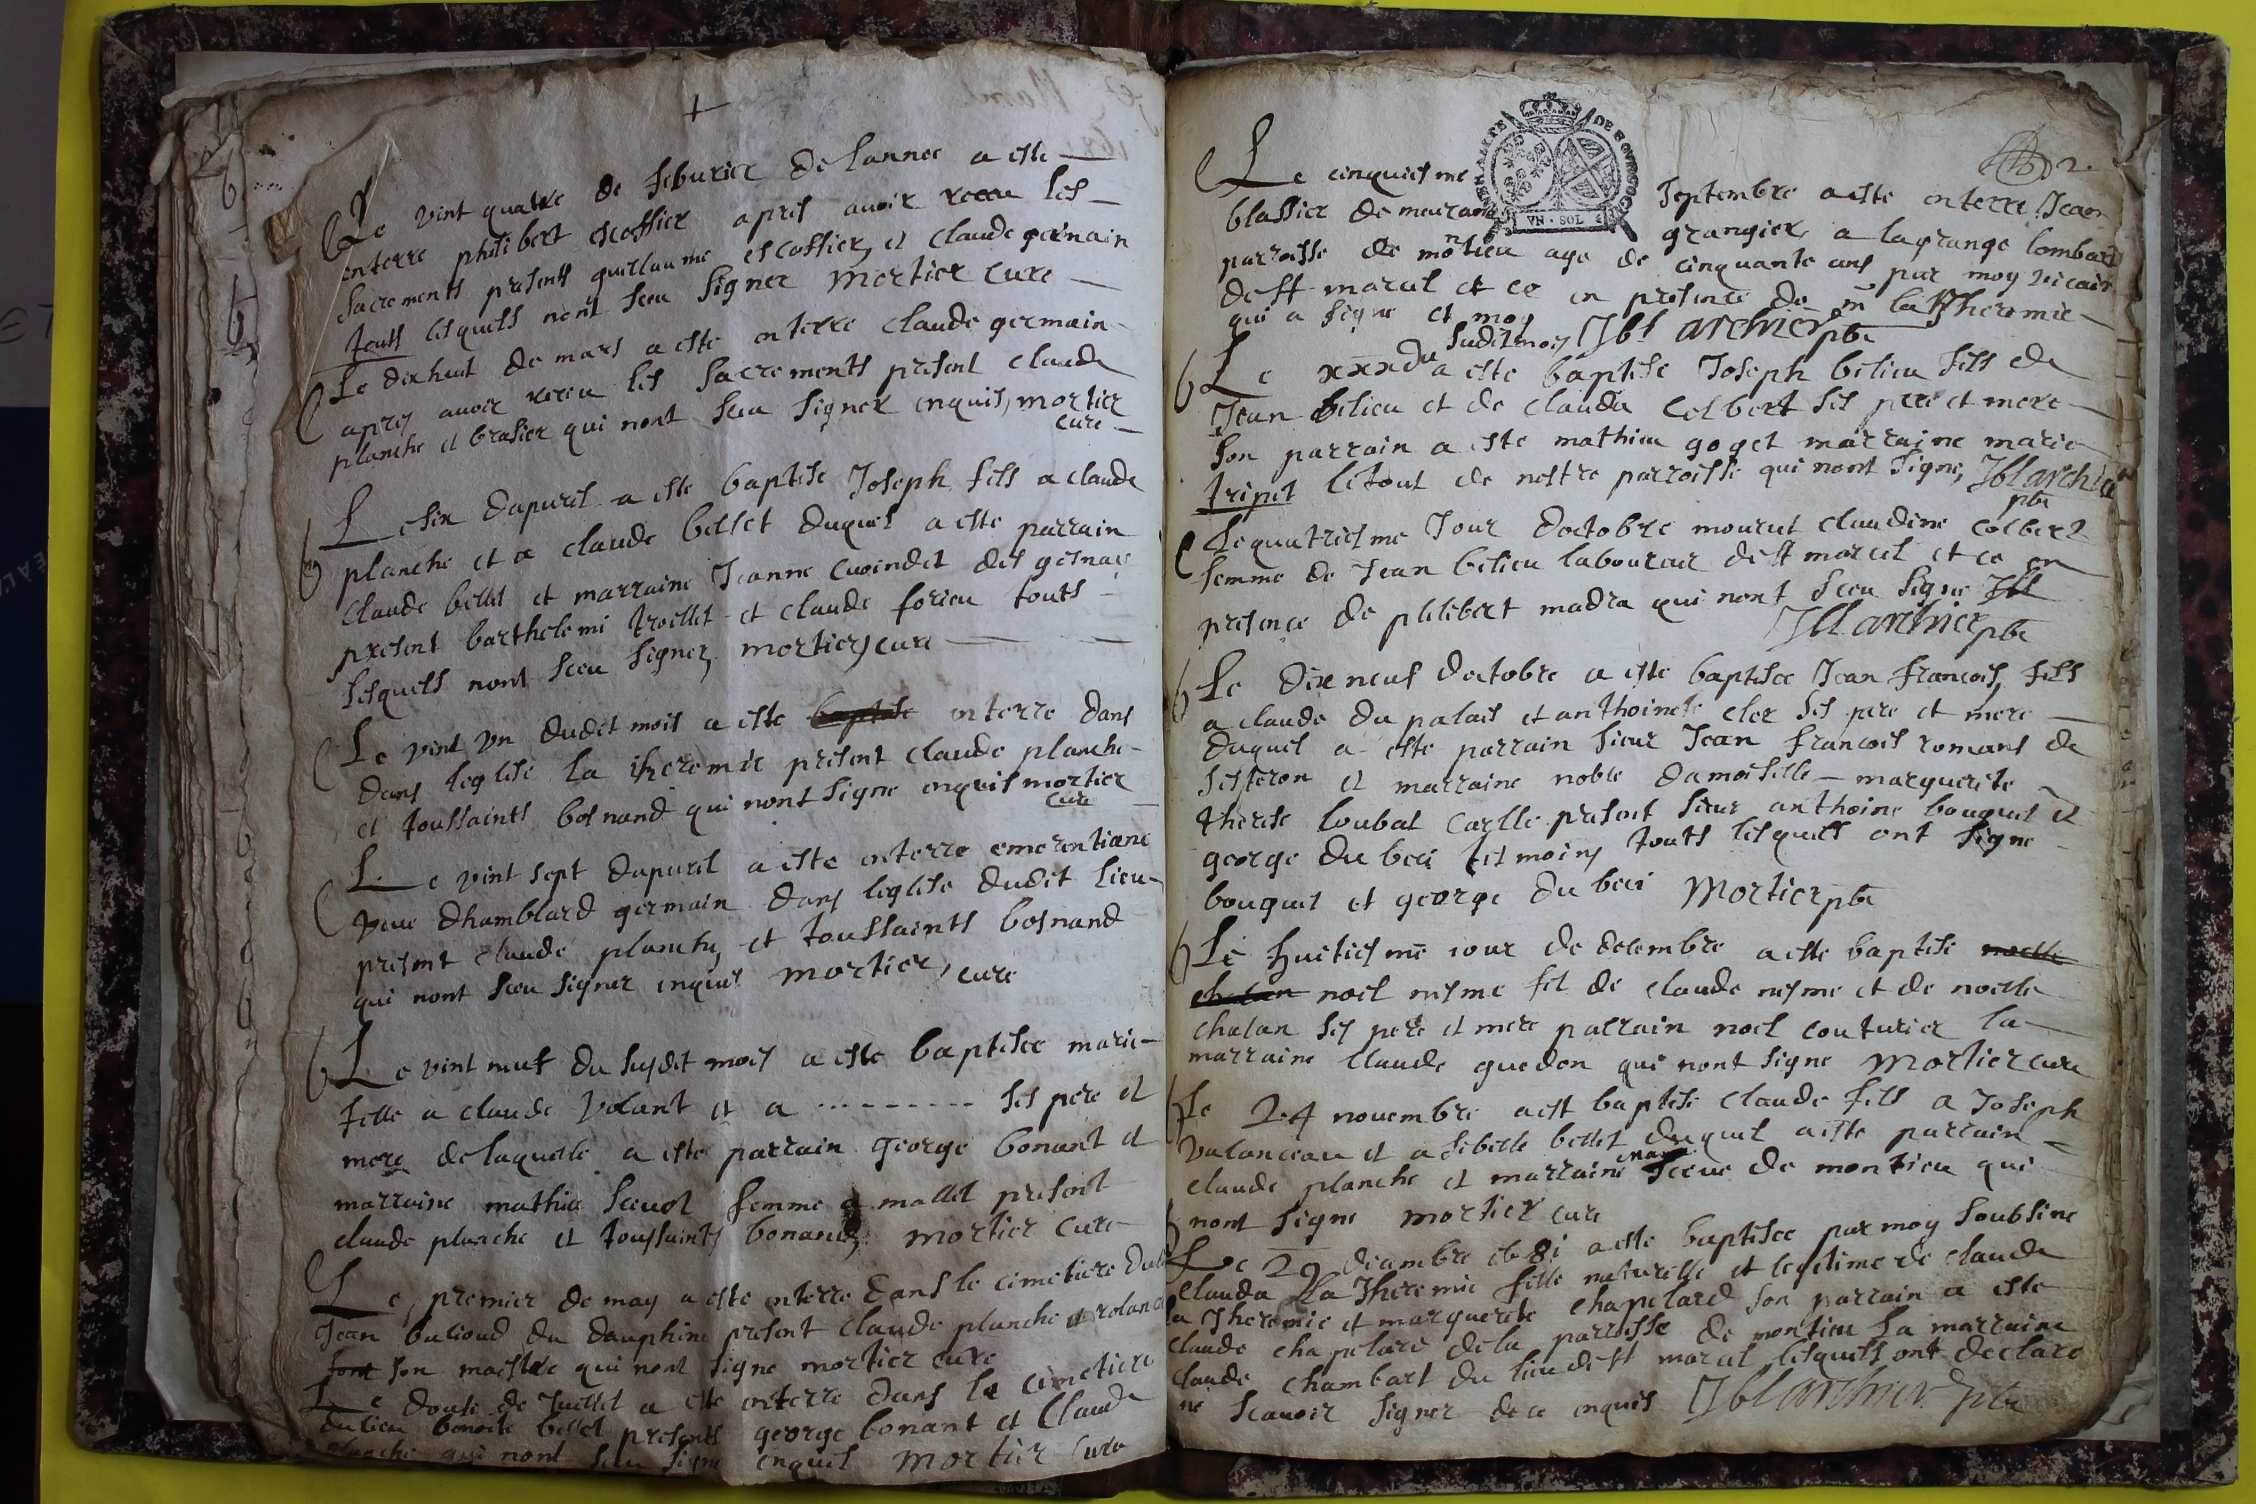 Le vint quatre de feburier de lannee a este
enterre philibert escoffier apres avoir receu les
sacrements presents guillaume escoffier, et claude germain
touts lesquels nont sceu signer mortier cure
Le dixhuit de mars a este enterre claude germain
apres avoir receu les sacrements present claude
planche et brasier qui nont sceu signer enquis, mortier
cure
Le six dapuril a este baptise Joseph fils a claude
planche et a claude bellet duquel a este parrain
claude bellet et marraine Jeanne
present barthelemi trollet et claude forieu touts
lesquels nont sceu signer, mortier, cure
Le vint un dudit mois a este baptise enterre dans
dans leglise la iheremie present claude planche
et toussaints bosnand qui nont signe enquis mortier
cure
Le vint sept dapuril a este enterre emerentiane
veue dhamblard germain dans leglise dudit lieu
present claude planche, et toussaints bosnand
qui nont sceu signer enquis mortier, cure
Le vint neuf du susdit mois a este baptisee marie
fille a claude volant et a - - - - - - - - - ses pere et
mere de laquelle a este parrain george bonant et
marraine mathia femme a mallet present
claude planche et toussaints bonand, mortier cure
Le, premier de may a este enterre dans le cimetiere
Jean bulioud du dauphine present claude planche et
son maistre qui nont signe mortier cure
Le douse de Juillet a este enterre dans le cimetiere
du lieu benoite bellet presents george bonant et Claude
planche qui nont sceu signe enquis mortier cure
2.
GENERALITE DE BOVRGOGNE
VN · SOL
Le cinquiesme septembre a este enterre Jean
blassier demeurant grangier a la grange lombard
parroisse de montieu age de cinquante ans par moy vicaire
de st marcel et ce en presence de mr la Jheremie
qui a signe et moy Jbl archier pbr
Le xxx du susdit mois a este baptise Joseph bilieu fils de
Jean bilieu et de clauda Colbert ses pere et mere
son parrain a este mathieu goget marraine marie
tripet le tout de nostre parroisse qui nont signe, Jbl archier
pbr
Le quatriesme Jour doctobre mourut claudine colbert
femme de Jean bilieu laboureur de st marcel et ce en
presence de philibert madra qui nont sceu signe Jbl
Jbl archier pbr
Le dix neuf doctobre a este baptisee Jean francois, fils
a claude du palais et anthoinete cler ses pere et mere
duquel a este parrain sieur Jean francois romans de
sisteron et marraine noble damoiselle marguerite
therese loubat Carlle present sieur anthoine bouquet et
george du beci tesmoins touts lesquels ont signe
bouquet et george du beci Mortier pbr
Le huitiesme iour de decembre a este baptise noelle
chalan noel mesme fil de claude mesme et de noelle
chalan ses pere et mere parrain noel couturier la
marraine claude guedon qui nont signe mortier cure
Le 24 novembre a est baptise claude fils a Joseph
valanceau et a sibelle bellet duquel a iste parrain
claude planche et marraine de montieu qui
nont signe mortier cure
Le 29 deambre 1681 a este baptisee par moy soubsine
Clauda La Jheremie fille naturelle et legitime de claude
la Jheremie et marguerite chapelard son parrain a este
claude chapelard de la parroisse de montieu sa marraine
claude chambart du lieu de st marcel lesquels ont declare
ne scavoir signer de ce enquis Jbl archier pbr